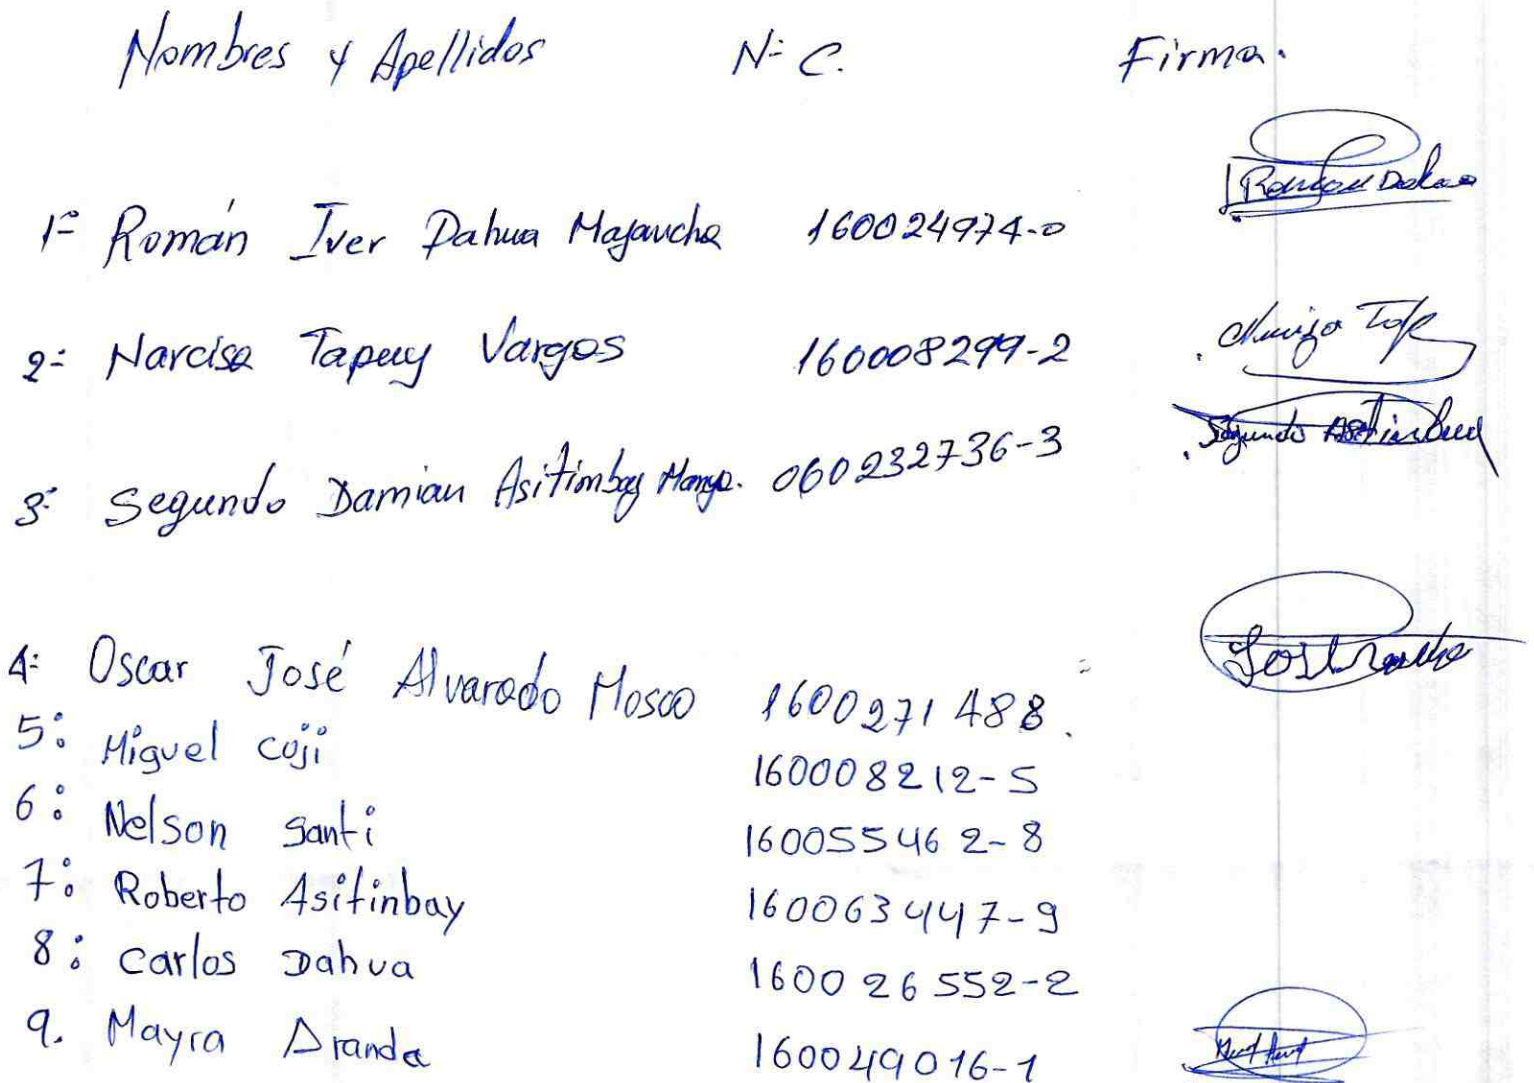 Nombres y Apellidos N: C. Firma.
1= Román Iver Dahua Majaucha 160024974-0
2: Narcisa Tapuy Vargas 160008299-2
3: Segundo Damian Asitimbay Manya. 060232736-3 Segundo Asitimbay
4: Oscar José Alvarado Mosco 1600271488.
5: Miguel Cuji 160008212-5
6: Nelson Santi 160055462-8
7: Roberto Asitinbay 160063447-9
8: Carlos Dahua 160026552-2
9. Mayra Aranda 160049016-1